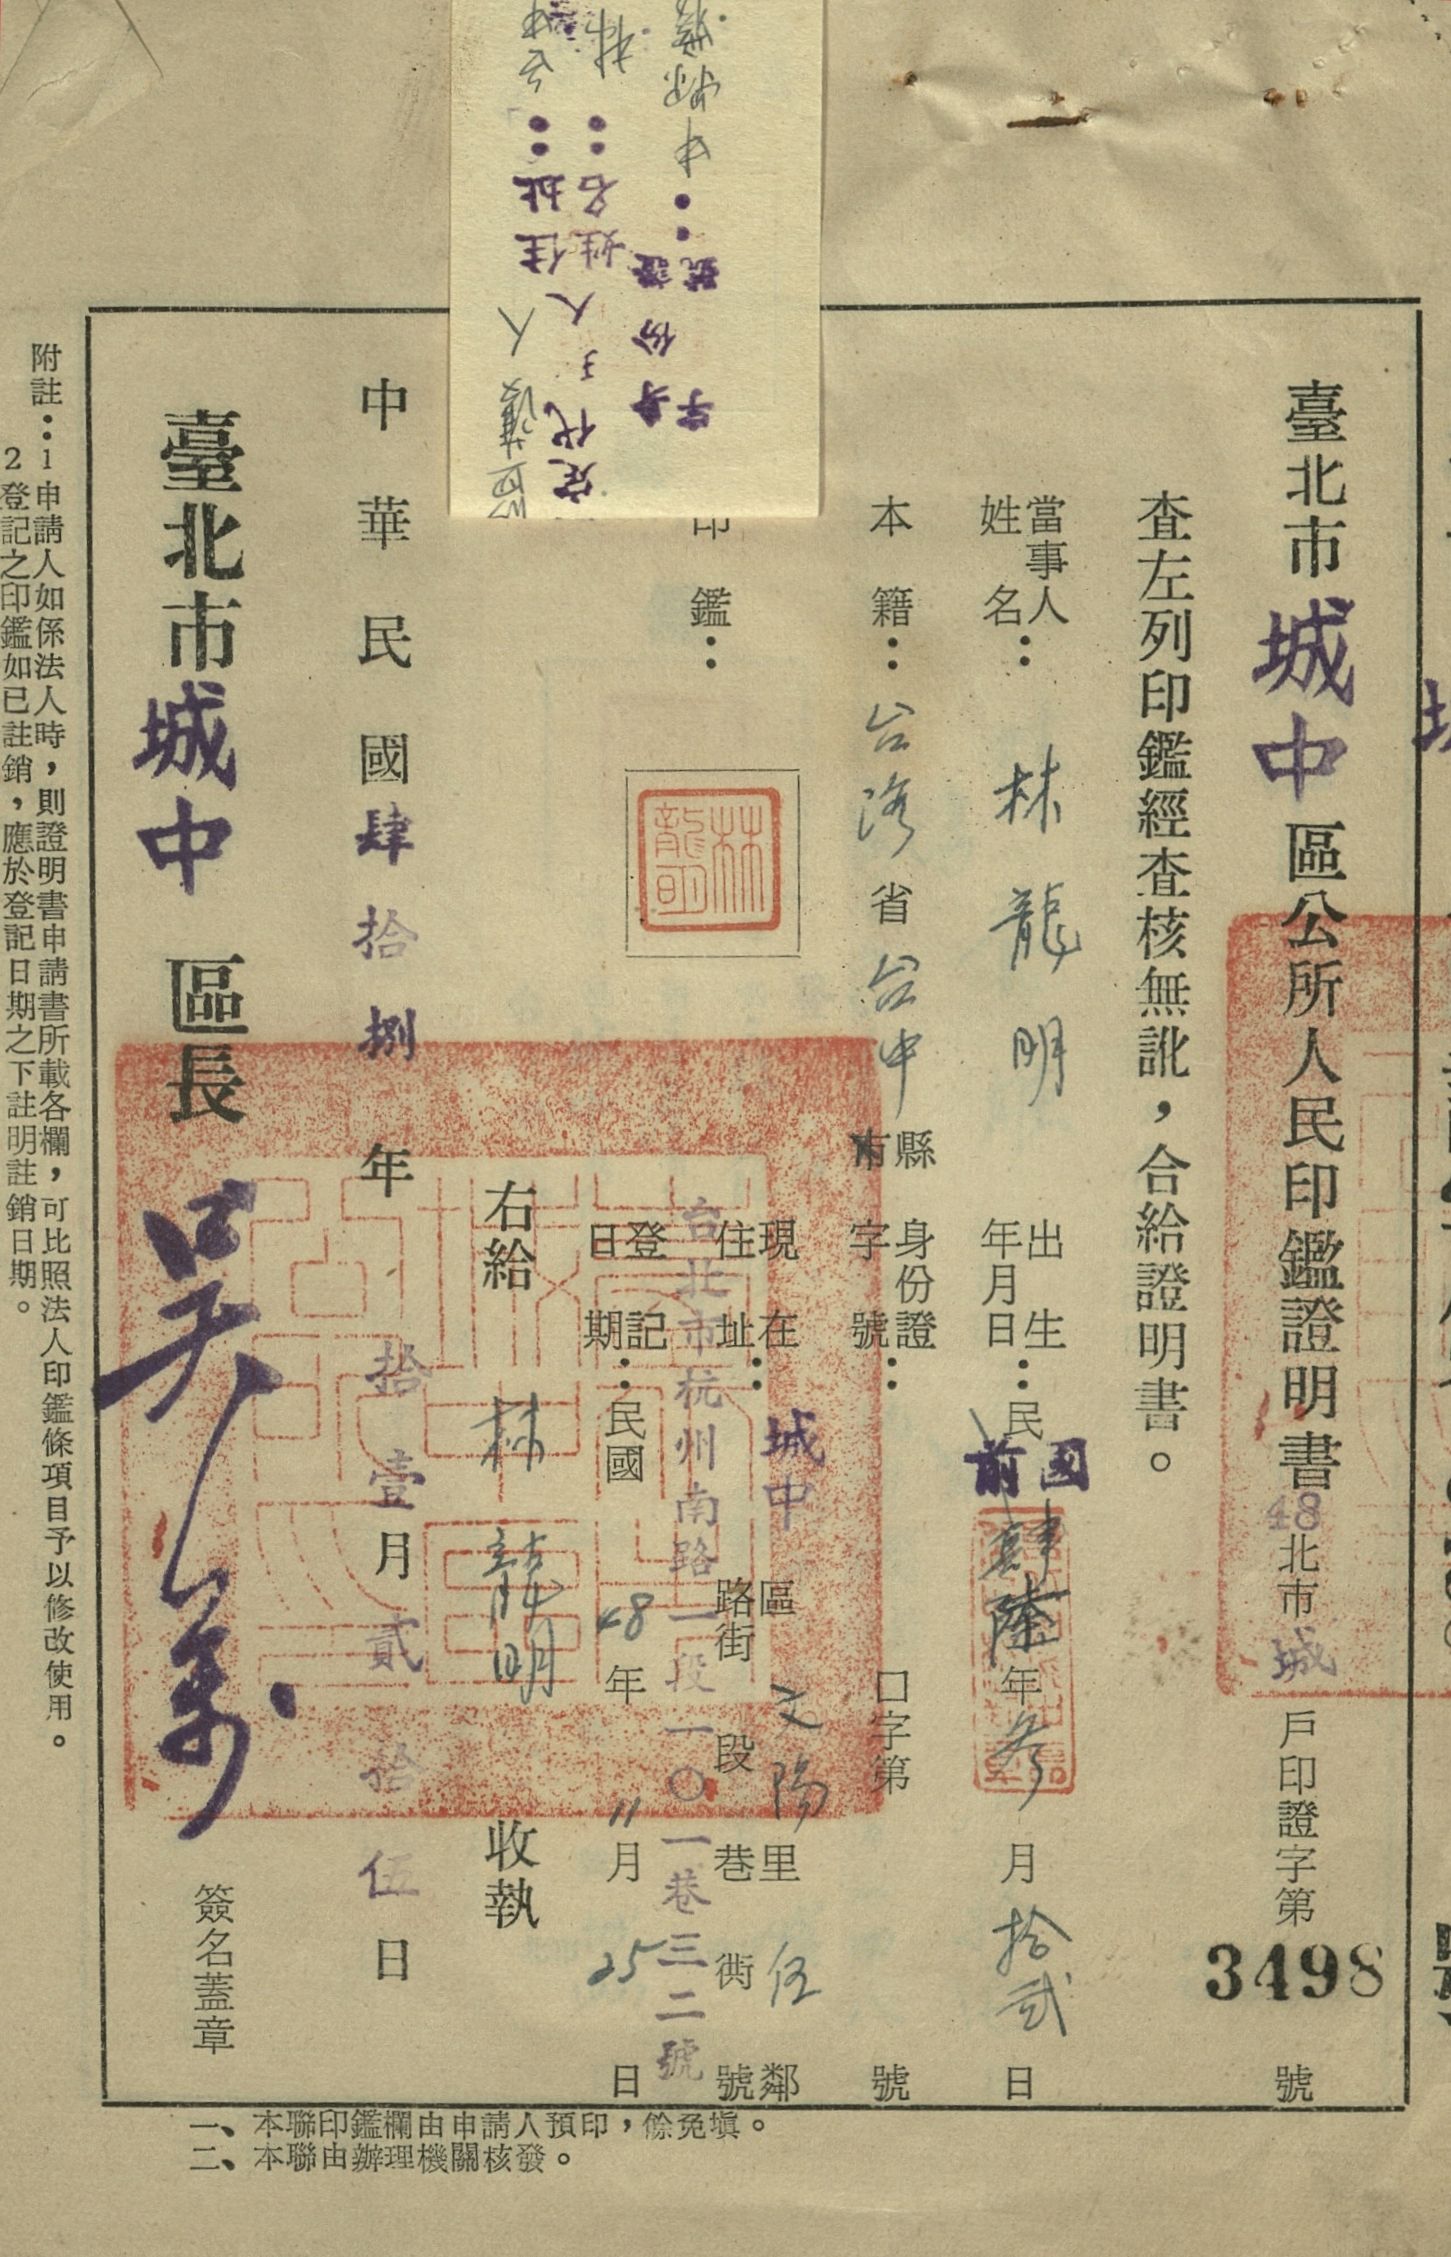 臺北市城中區公所人民印鑑證明書
48北市城戶印證字第3498號
查左列印鑑經查核無訛，合給證明書。
當事人姓名：林龍明
出生年月日：民國前肆陸年參月拾貳日
本籍：台灣省台中縣市
身份證字號：口字第號
印鑑：
林龍明
現在住址：城中區文陽里伍鄰
路街段巷衖號
台北市杭州南路一段一〇一巷三二號
登記日期：民國48年11月25日
右給林龍明收執
中華民國肆拾捌年拾壹月貳拾伍日
臺北市城中區長吳簽名蓋章
附註：1申請人如係法人時，則證明書申請書所載各欄，可比照法人印鑑條項目予以修改使用。
2登記之印鑑如已註銷，應於登記日期之下註明註銷日期。
一、本聯印鑑欄由申請人預印，餘免塡。
二、本聯由辦理機關核發。
住址：
姓名：林
身份證
字號：